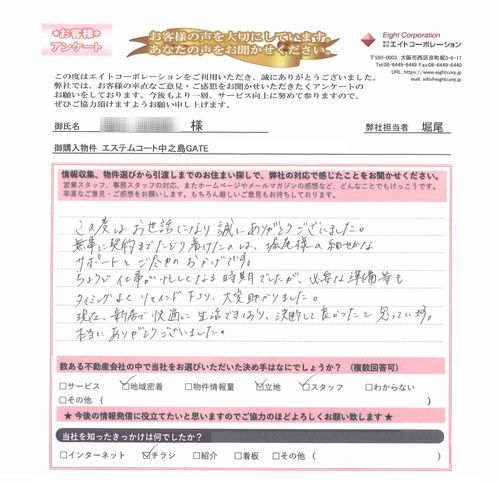 *お客様*
アンケート
お客様の声を大切にしています。
あなたの声をお聞かせください。
Eight Corporation
株式会社エイトコーポレーション
〒550-0003 大阪市西区京町堀3-6-17
Tel:06-6449-6449 Fax:06-6449-6440
URL: https://www.eightcorp.jp/
mail: info@eightcorp.jp
この度はエイトコーポレーションをご利用いただき、誠にありがとうございました。
弊社では、お客様の率直なご意見・ご感想をお聞かせいただきたくアンケートの
お願いをしております。今後もより一層、サービス向上に努めて参りますので、
ぜひご協力頂けますようお願い申し上げます。
御氏名 様 弊社担当者 堀尾
御購入物件 エステムコート中之島GATE
情報収集、物件選びから引渡しまでのお住まい探しで、弊社の対応で感じたことをお聞かせください。
営業スタッフ、事務スタッフの対応、またホームページやメールマガジンの感想など、どんなことでもけっこうです。
率直なご意見・ご感想をお願いします。もちろん厳しいご意見もお待ちしております。
この度はお世話になり誠にありがとうございました。
無事に契約までたどり着けたのは、堀尾様の細やかな
サポートとご尽力のおかげです。
ちょうど仕事が忙しくなる時期でしたが、必要な準備等も
タイミングよくリマインド下さり、大変助かりました。
現在、新居で快適に生活できており、決断して良かったと思っています。
本当にありがとうございました。
数ある不動産会社の中で当社をお選びいただいた決め手はなにでしょうか? (複数回答可)
□サービス ☑地域密着 □物件情報量 ☑立地 ☑スタッフ □わからない
□その他 (
★ 今後の情報発信に役立てたいと思いますのでご協力のほどよろしくお願い致します ★
当社を知ったきっかけは何でしたか?
□インターネット ☑チラシ □紹介 □看板 □その他 (